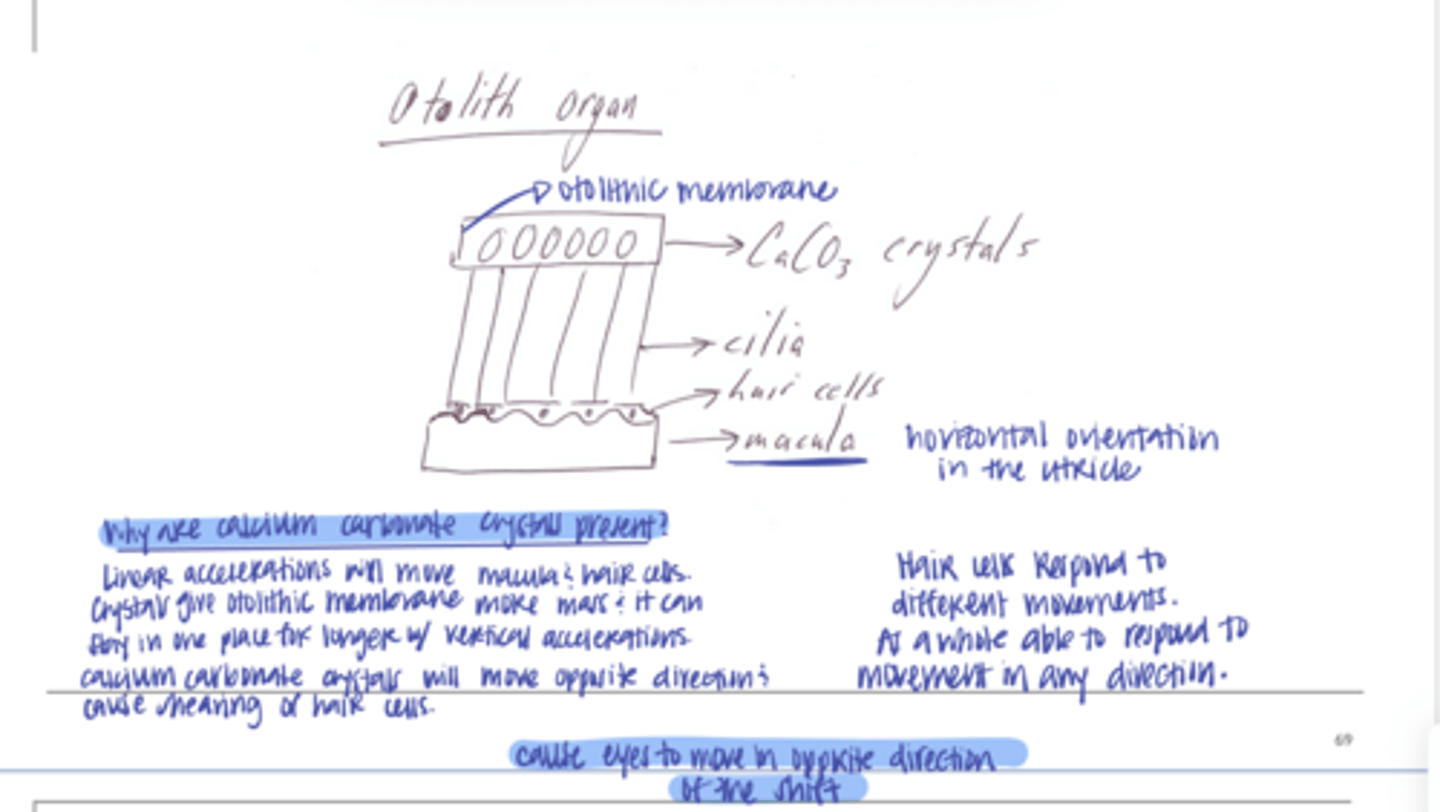 Otolith organ
otolithic membrane
CaCO3 crystals
cilia
hair cells
macula
horizontal orientation
in the utricle
Why are calcium carbonate crystals present?
Linear accelerations will move macula & hair cells.
Crystals give otolithic membrane more mass & it can
stay in one place for longer w/ vertical accelerations.
calcium carbonate crystals will move opposite direction &
cause shearing of hair cells.
Hair cells respond to
different movements.
As a whole able to respond to
movement in any direction.
69
cause eyes to move in opposite direction
of the shift